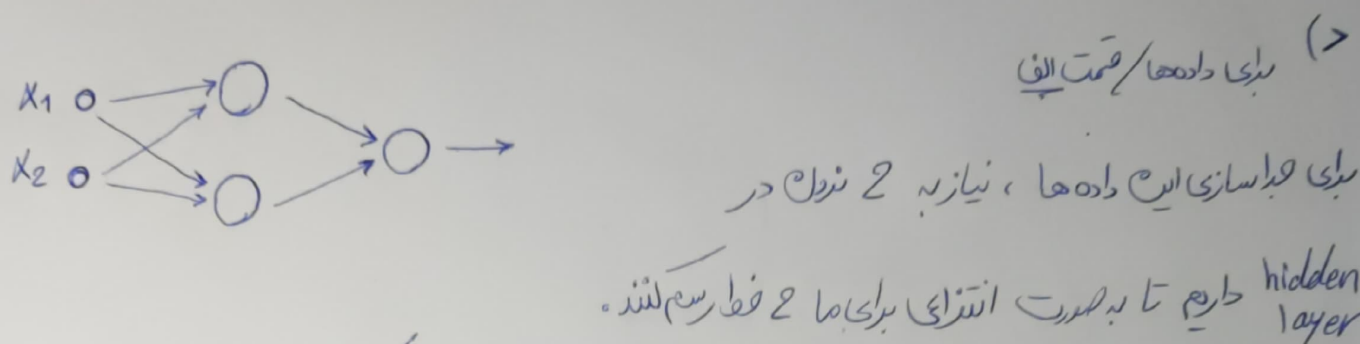 د) برای داده‌ها/قسمت الف
برای جداسازی این داده‌ها ، نیاز به 2 نرون در
hidden layer داریم تا به صورت انتزاعی برای ما 2 خط رسم کنند.
X1
X2